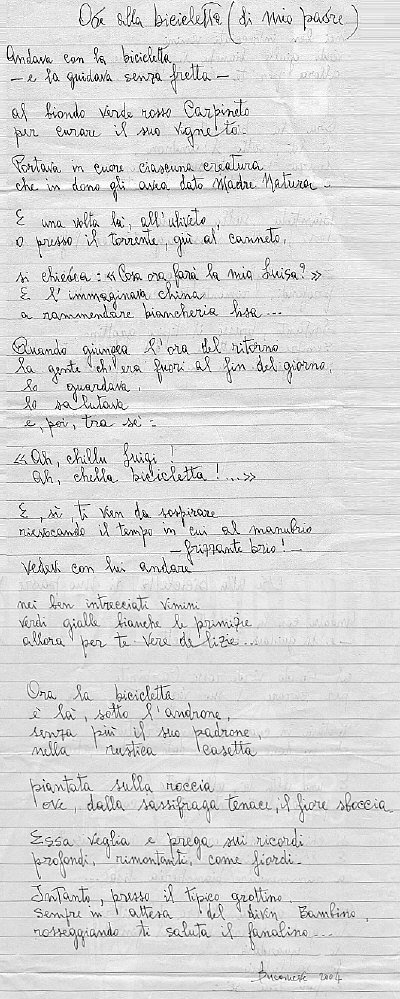 Ode alla bicicletta (di mio padre)
Andava con la bicicletta
– e la guidava senza fretta –
al biondo verde rosso Carpineto
per curare il suo vigneto.
Portava in cuore ciascuna creatura
che in dono gli avea dato Madre Natura –
E una volta là, all'uliveto,
o presso il torrente, giù al canneto,
si chiedea: «Cosa ora farà la mia Luisa?»
E l'immaginava china
a rammendare biancheria lisa...
Quando giungea l'ora del ritorno
la gente ch'era fuori al fin del giorno,
lo guardava,
lo salutava
e, poi, tra sé:
«Ah, chillu Luigi!
Ah, chella bicicletta!...»
E, sì, ti vien da sospirare
rievocando il tempo in cui al manubrio
– frizzante brio! –
vedevi con lui andare
nei ben intrecciati vimini
verdi gialle bianche le primizie
allora per te vere delizie...
Ora la bicicletta
è là, sotto l'androne,
senza più il suo padrone,
nella rustica casetta
piantata sulla roccia
ove, dalla sassifraga tenace, il fiore sboccia.
Essa veglia e prega sui ricordi
profondi, rimontanti, come fiordi.
Intanto, presso il tipico grottino
sempre in attesa del Divin Bambino,
rosseggiando ti saluta il fanalino...
2004